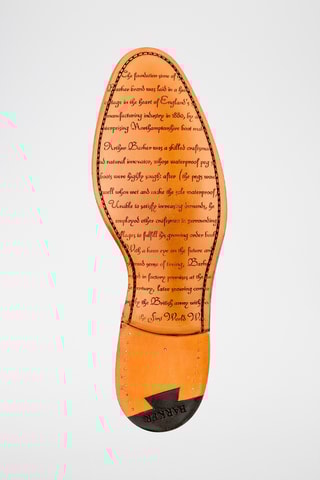 The foundation stone of the
Barker brand was laid in a
village in the heart of England's
manufacturing industry in 1880, by
enterprising Northamptonshire boot
Arthur Barker was a skilled craftsman
and natural innovator, whose waterproof peg
boots were highly sought after (the pegs
swell when wet and make the sole waterproof
Unable to satisfy increasing demands, he
employed other craftsmen in surrounding
villages to fulfill his growing order book
With a keen eye on the future and
sense of timing, Barker
built factory premises at the
century, later securing
by the British army
the First World W
BARKER